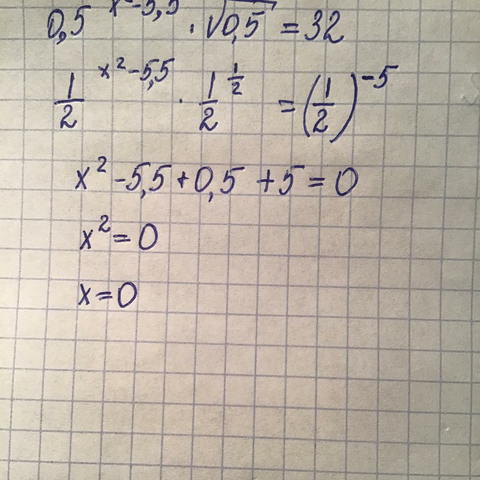 0,5^(x²-5,5) · √0,5 = 32
1/2^(x²-5,5) · 1/2^(1/2) = (1/2)^(-5)
x² -5,5 +0,5 +5 = 0
x² = 0
x = 0